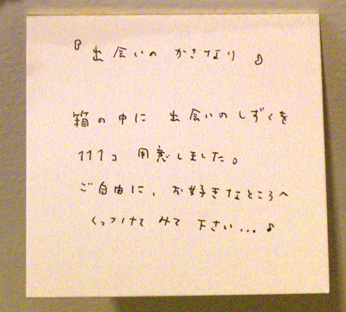 『出会いの かさなり』
箱の中に 出会いのしずくを
111コ 用意しました。
ご自由に、お好きなところへ
くっつけて みて 下さい...♪